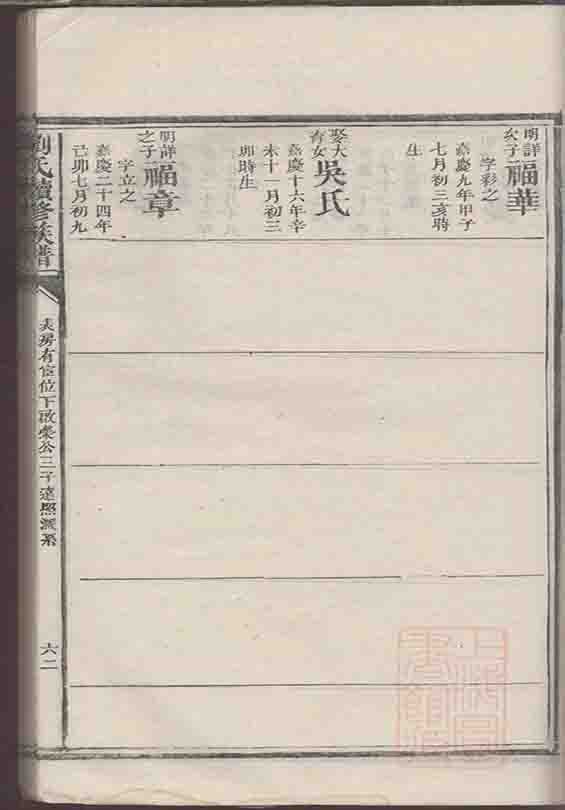 明詳
次子
福華
字彩之
嘉慶九年甲子
七月初三亥時
生
娶大
育女
吳氏
嘉慶十六年辛
未十一月初三
卯時生
明詳
之子
福章
字立之
嘉慶二十四年
己卯七月初九
劉氏續修族譜
房有宦位下啟榮公三子達照派系
六二
上海圖
書館藏